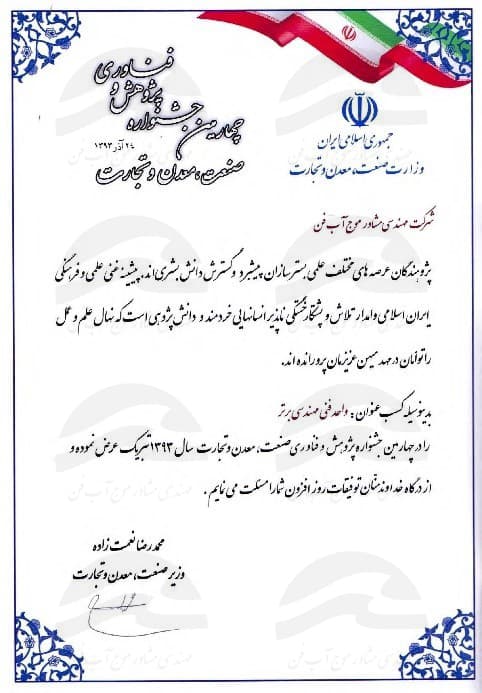 چهارمین جشنواره
پژوهش و
فناوری
صنعت، معدن و تجارت
۲۴ آذر ۱۳۹۳
جمهوری اسلامی ایران
وزارت صنعت، معدن و تجارت
شرکت مهندسی مشاور موج آب فن
پژوهندگان عرصه های مختلف علمی بسترسازان پیشبرد و گسترش دانش بشری اند. پیشینهٔ غنی علمی و فرهنگی
ایران اسلامی وامدار تلاش و پشتکار خستگی ناپذیر انسانهایی خردمند و دانش پژوهی است که نهال علم و عمل
را توأمان در مهد میهن عزیزمان پرورانده اند.
بدینوسیله کسب عنوان : واحد فنی مهندسی برتر
را در چهارمین جشنواره پژوهش و فناوری صنعت، معدن و تجارت سال ۱۳۹۳ تبریک عرض نموده و
از درگاه خداوند منّان توفیقات روز افزون شما را مسئلت می نمایم .
محمدرضا نعمت زاده
وزیر صنعت، معدن و تجارت
مهندسی مشاور موج آب فن